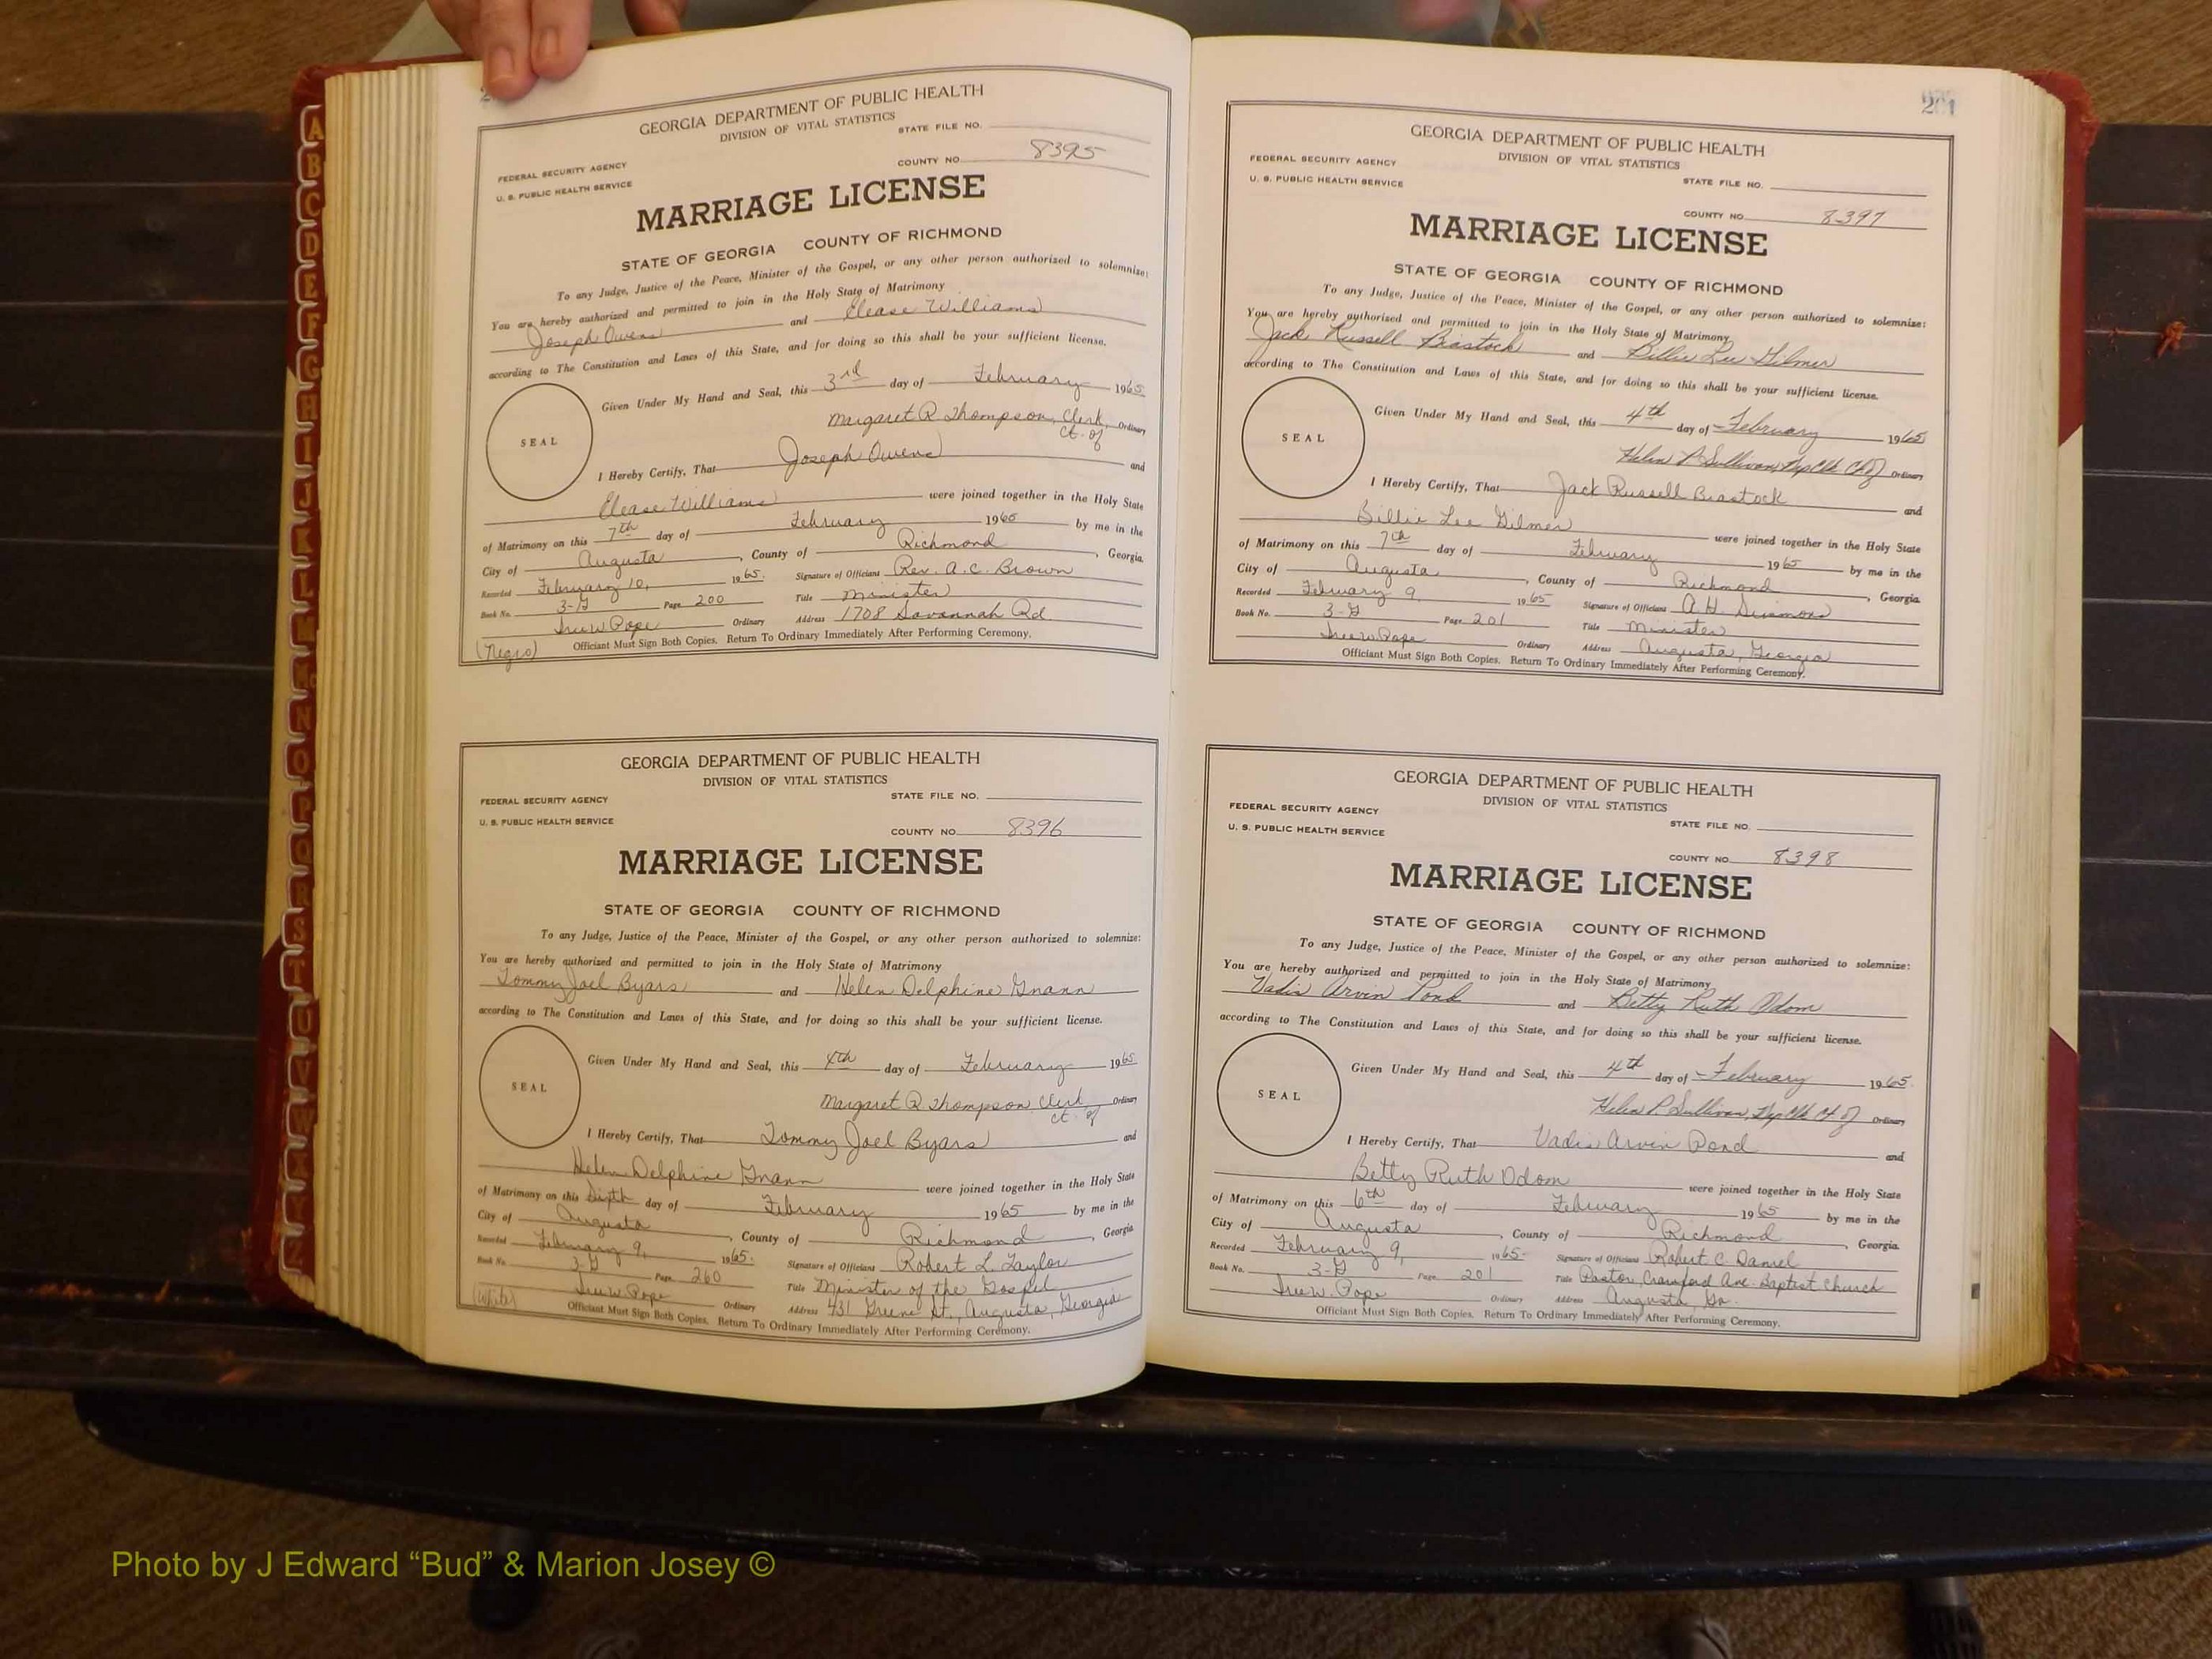 A
B
C
D
E
F
G
H
I
J
K
L
M
N
O
P
Q
R
S
T
U
V
W
GEORGIA DEPARTMENT OF PUBLIC HEALTH
DIVISION OF VITAL STATISTICS
STATE FILE NO.
FEDERAL SECURITY AGENCY
U. S. PUBLIC HEALTH SERVICE
COUNTY NO. 8395
MARRIAGE LICENSE
STATE OF GEORGIA COUNTY OF RICHMOND
To any Judge, Justice of the Peace, Minister of the Gospel, or any other person authorized to solemnize:
You are hereby authorized and permitted to join in the Holy State of Matrimony
Joseph Owens and Elease Williams
according to The Constitution and Laws of this State, and for doing so this shall be your sufficient license.
Given Under My Hand and Seal, this 3rd day of February 1965
SEAL
Margaret R Thompson, Clerk, Ordinary
Ct. of
I Hereby Certify, That Joseph Owens and
Elease Williams were joined together in the Holy State
of Matrimony on this 7th day of February 1965 by me in the
City of Augusta, County of Richmond, Georgia.
Recorded February 10, 1965. Signature of Officiant Rev. A. C. Brown
Book No. 3-G Page 200 Title Minister
Pope Ordinary Address 1708 Savannah Rd.
(Negro) Officiant Must Sign Both Copies. Return To Ordinary Immediately After Performing Ceremony.
GEORGIA DEPARTMENT OF PUBLIC HEALTH
DIVISION OF VITAL STATISTICS
STATE FILE NO.
FEDERAL SECURITY AGENCY
U. S. PUBLIC HEALTH SERVICE
COUNTY NO. 8396
MARRIAGE LICENSE
STATE OF GEORGIA COUNTY OF RICHMOND
To any Judge, Justice of the Peace, Minister of the Gospel, or any other person authorized to solemnize:
You are hereby authorized and permitted to join in the Holy State of Matrimony
Tommy Joel Byars and Helen Delphine Gnann
according to The Constitution and Laws of this State, and for doing so this shall be your sufficient license.
Given Under My Hand and Seal, this 4th day of February 1965
SEAL
Margaret R Thompson Clerk Ordinary
ct. of
I Hereby Certify, That Tommy Joel Byars and
Helen Delphine Gnann were joined together in the Holy State
of Matrimony on this Sixth day of February 1965 by me in the
City of Augusta, County of Richmond, Georgia
Recorded February 9, 1965. Signature of Officiant Robert L. Taylor
Book No. 3-G Page 260 Title Minister of the Gospel
Pope Ordinary Address 731 Greene St., Augusta, Georgia
(White) Officiant Must Sign Both Copies. Return To Ordinary Immediately After Performing Ceremony.
201
GEORGIA DEPARTMENT OF PUBLIC HEALTH
DIVISION OF VITAL STATISTICS
FEDERAL SECURITY AGENCY
U. S. PUBLIC HEALTH SERVICE
STATE FILE NO.
COUNTY NO. 8397
MARRIAGE LICENSE
STATE OF GEORGIA COUNTY OF RICHMOND
To any Judge, Justice of the Peace, Minister of the Gospel, or any other person authorized to solemnize:
You are hereby authorized and permitted to join in the Holy State of Matrimony
Jack Russell Brastock and Billie Lee Gilmer
according to The Constitution and Laws of this State, and for doing so this shall be your sufficient license.
Given Under My Hand and Seal, this 4th day of February 1965
SEAL
Helen P Sullivan Dep Clk Ct of Ordinary
I Hereby Certify, That Jack Russell Brastock and
Billie Lee Gilmer were joined together in the Holy State
of Matrimony on this 7th day of February 1965 by me in the
City of Augusta, County of Richmond, Georgia
Recorded February 9, 1965 Signature of Officiant A. H.
Book No. 3-G Page 201 Title Minister
Pope Ordinary Address Augusta, Georgia
Officiant Must Sign Both Copies. Return To Ordinary Immediately After Performing Ceremony.
GEORGIA DEPARTMENT OF PUBLIC HEALTH
DIVISION OF VITAL STATISTICS
FEDERAL SECURITY AGENCY
U. S. PUBLIC HEALTH SERVICE
STATE FILE NO.
COUNTY NO. 8398
MARRIAGE LICENSE
STATE OF GEORGIA COUNTY OF RICHMOND
To any Judge, Justice of the Peace, Minister of the Gospel, or any other person authorized to solemnize:
You are hereby authorized and permitted to join in the Holy State of Matrimony
Vadis Arvin Pond and Betty Ruth Odom
according to The Constitution and Laws of this State, and for doing so this shall be your sufficient license.
Given Under My Hand and Seal, this 4th day of February 1965
SEAL
Helen P. Sullivan, Dep Clk Ct of Ordinary
I Hereby Certify, That Vadis Arvin Pond and
Betty Ruth Odom were joined together in the Holy State
of Matrimony on this 6th day of February 1965 by me in the
City of Augusta, County of Richmond, Georgia.
Recorded February 9, 1965 Signature of Officiant Robert C. Daniel
Book No. 3-G Page 201 Title Pastor, Crawford Ave. Baptist Church
Pope Ordinary Address Augusta, Ga.
Officiant Must Sign Both Copies. Return To Ordinary Immediately After Performing Ceremony.
Photo by J Edward “Bud” & Marion Josey ©